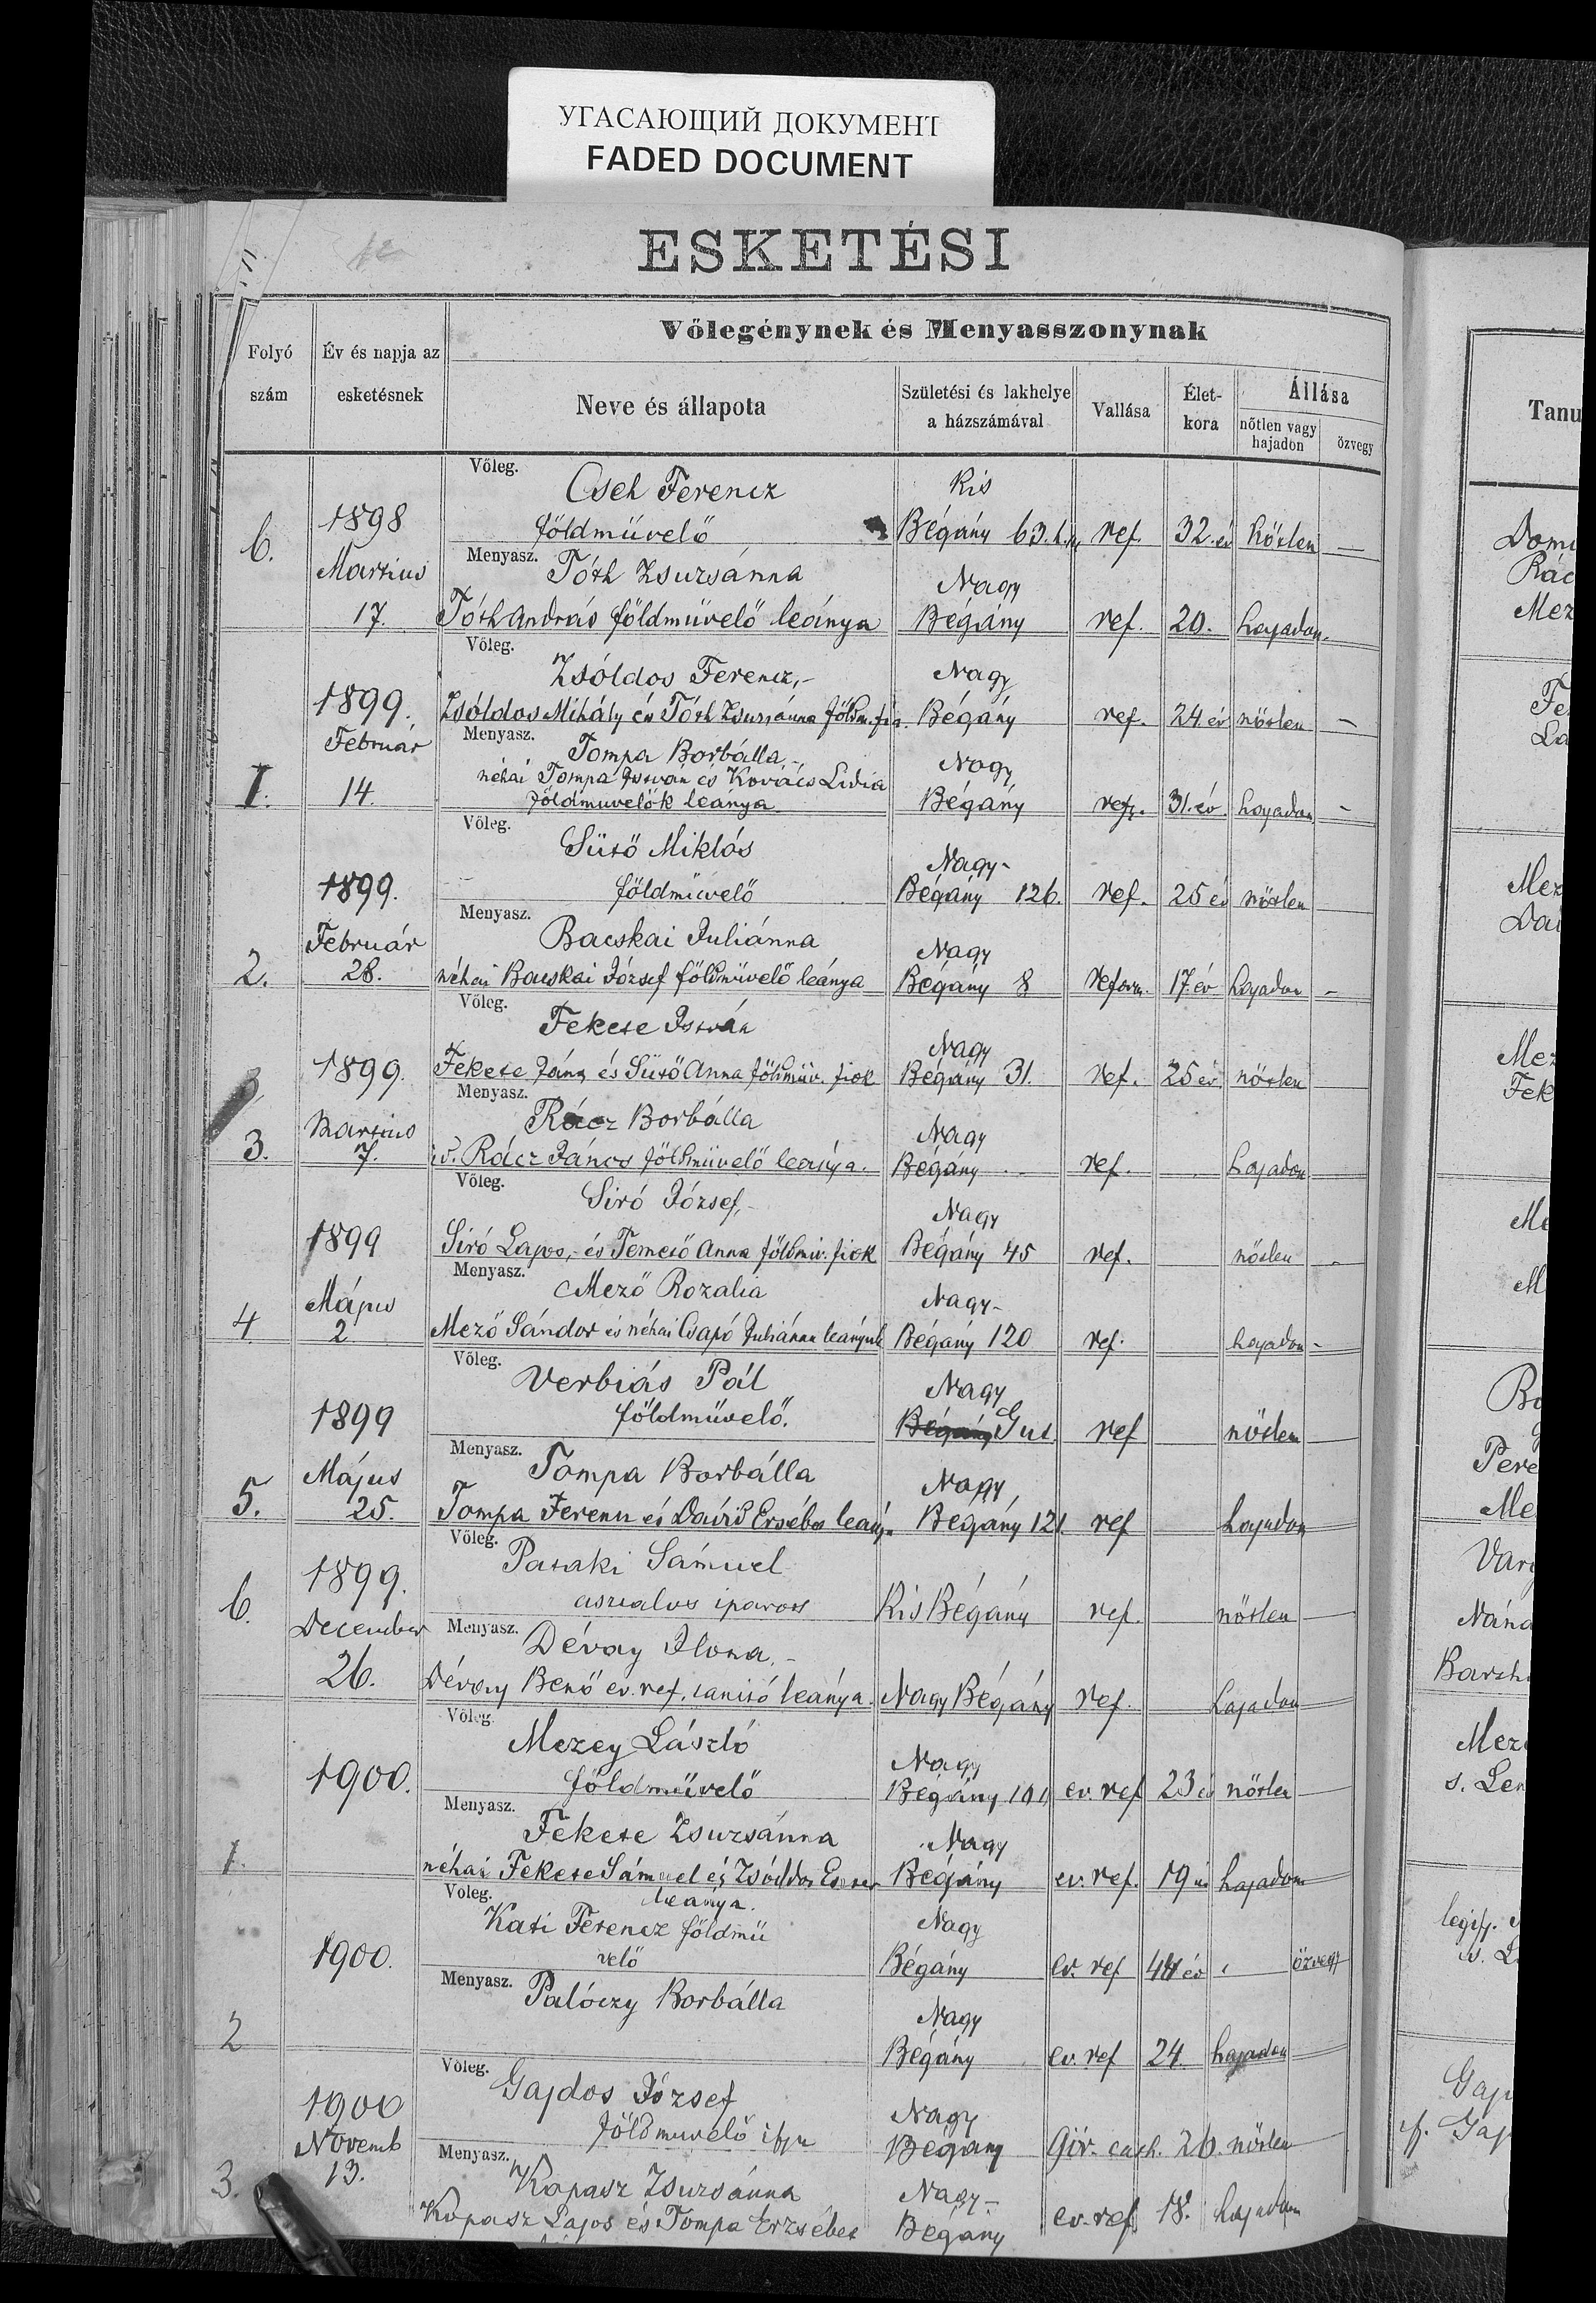 УГАСАЮЩИЙ ДОКУМЕНТ
FADED DOCUMENT
ESKETÉSI
Folyó szám
Év és napja az esketésnek
Vőlegénynek és Menyasszonynak
Neve és állapota
Születési és lakhelye a házszámával
Vallása
Élet-kora
Állása
nőtlen vagy hajadon
özvegy
Tanu
6.
1898
Martius
17.
Vőleg.
Cseh Ferencz
Kis
földmüvelő
Bégány 63. ref. 32. év nőtlen —
Menyasz.
Tóth Zsuzsánna
Nagy
Tóth András földmüvelő leánya Bégány ref. 20. hajadon.
1.
1899.
Február
14.
Vőleg.
Zsóldos Ferencz,-
Nagy
Zsóldos Mihály és Tóth Zsuzsánna földm. fia. Bégány ref. 24 év nőtlen —
Menyasz.
Tompa Borbálla,-
Nagy
néhai Tompa István és Kovács Lidia
földmuvelők leánya Bégány ref. 31. év. hajadon -
2.
1899.
Február
28.
Vőleg.
Sütő Miklós
Nagy-
földmüvelő Bégány 126. ref. 25 év nőtlen
Menyasz.
Bacskai Juliánna
Nagy
néhai Bacskai József földmüvelő leánya Bégány 8 reform. 17. év hajadon -
3.
1899.
Martius
7.
Vőleg.
Fekete István
Nagy
Fekete János és Sütő Anna földmüv. fiok Bégány 31. ref. 25 év nőtlen
Menyasz.
Rácz Borbálla
Nagy
id. Rácz János földmüvelő leánya. Bégány ref. hajadon
4
1899
Május
2.
Vőleg.
Siró József,-
Nagy
Siró Lajos,- és Temető Anna földmiv. fiok Bégány 45 ref. nőtlen
Menyasz.
Mező Rozalia
Nagy-
Mező Sándor és néhai Csapó Juliánna leányuk Bégány 120 ref. hajadon -
5.
1899
Május
25.
Vőleg.
Verbiás Pál
Nagy
földmüvelő. Bégány Gut. ref nőtlen
Menyasz.
Tompa Borbálla
Nagy
Tompa Ferencz és Dávid Ersébet leány. Bégány 121. ref hajadon
6.
1899.
December
26.
Vőleg.
Pataki Sámuel
asztalos iparos Kis Bégány ref. nőtlen
Menyasz.
Dévay Ilona,-
Dévay Benő ev. ref. tanitó leánya. Nagy Bégány ref. hajadon
1.
1900.
Vőleg.
Mezey László
Nagy
földmüvelő Bégány 101 ev. ref 23 év nőtlen
Menyasz.
Fekete Zsuzsánna
Nagy
néhai Fekete Sámuel és Zsóldos Eszter Bégány ev. ref. 19 év hajadon
leanya.
2
1900.
Vőleg.
Kati Ferencz földmü
velő
Nagy
Bégány ev. ref 44 év özvegy
Menyasz.
Palóczy Borbálla
Nagy
Bégány ev. ref 24. hajadon
3.
1900
Novemb
13.
Vőleg.
Gajdos József
Nagy
földmuvelő ifju Bégány Gör. cath. 26. nőtlen
Menyasz.
Kopasz Zsuzsánna
Nagy-
Kopasz Lajos és Tompa Erzsébet Bégány ev. ref 18. hajadon